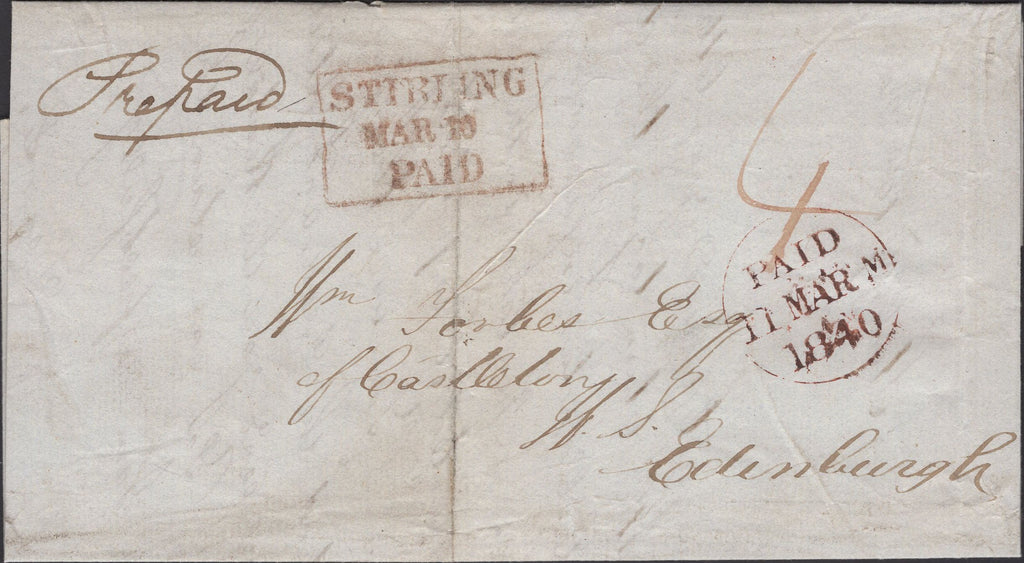 Prepaid
STIRLING
MAR 10
PAID
4
PAID
11 MAR M
1840
Wm Forbes Esq
of Castleton
W.S.
Edinburgh